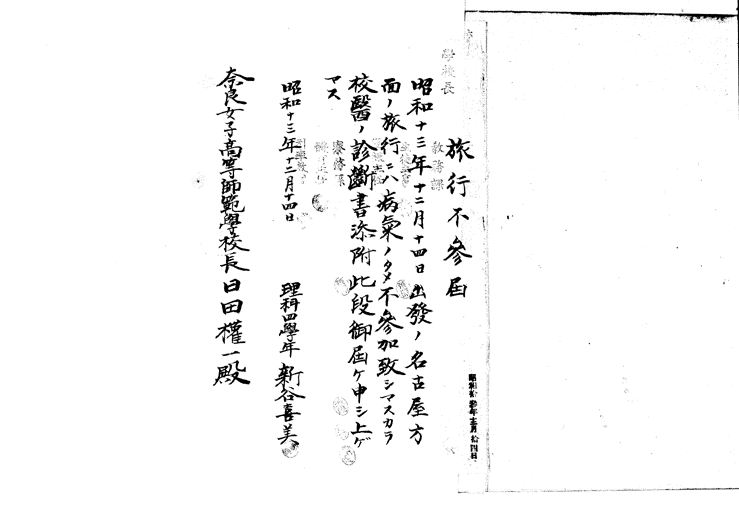 旅行不參屆
昭和十三年十二月十四日出發ノ名古屋方
面ノ旅行ニハ病氣ノタメ不參加致シマスカラ
校醫ノ診斷書添附此段御屆ケ申シ上ゲ
マス
昭和十三年十二月十四日
理科四學年 新谷喜美
奈良女子高等師範學校長日田權一殿
學校長
教務課
寮務課